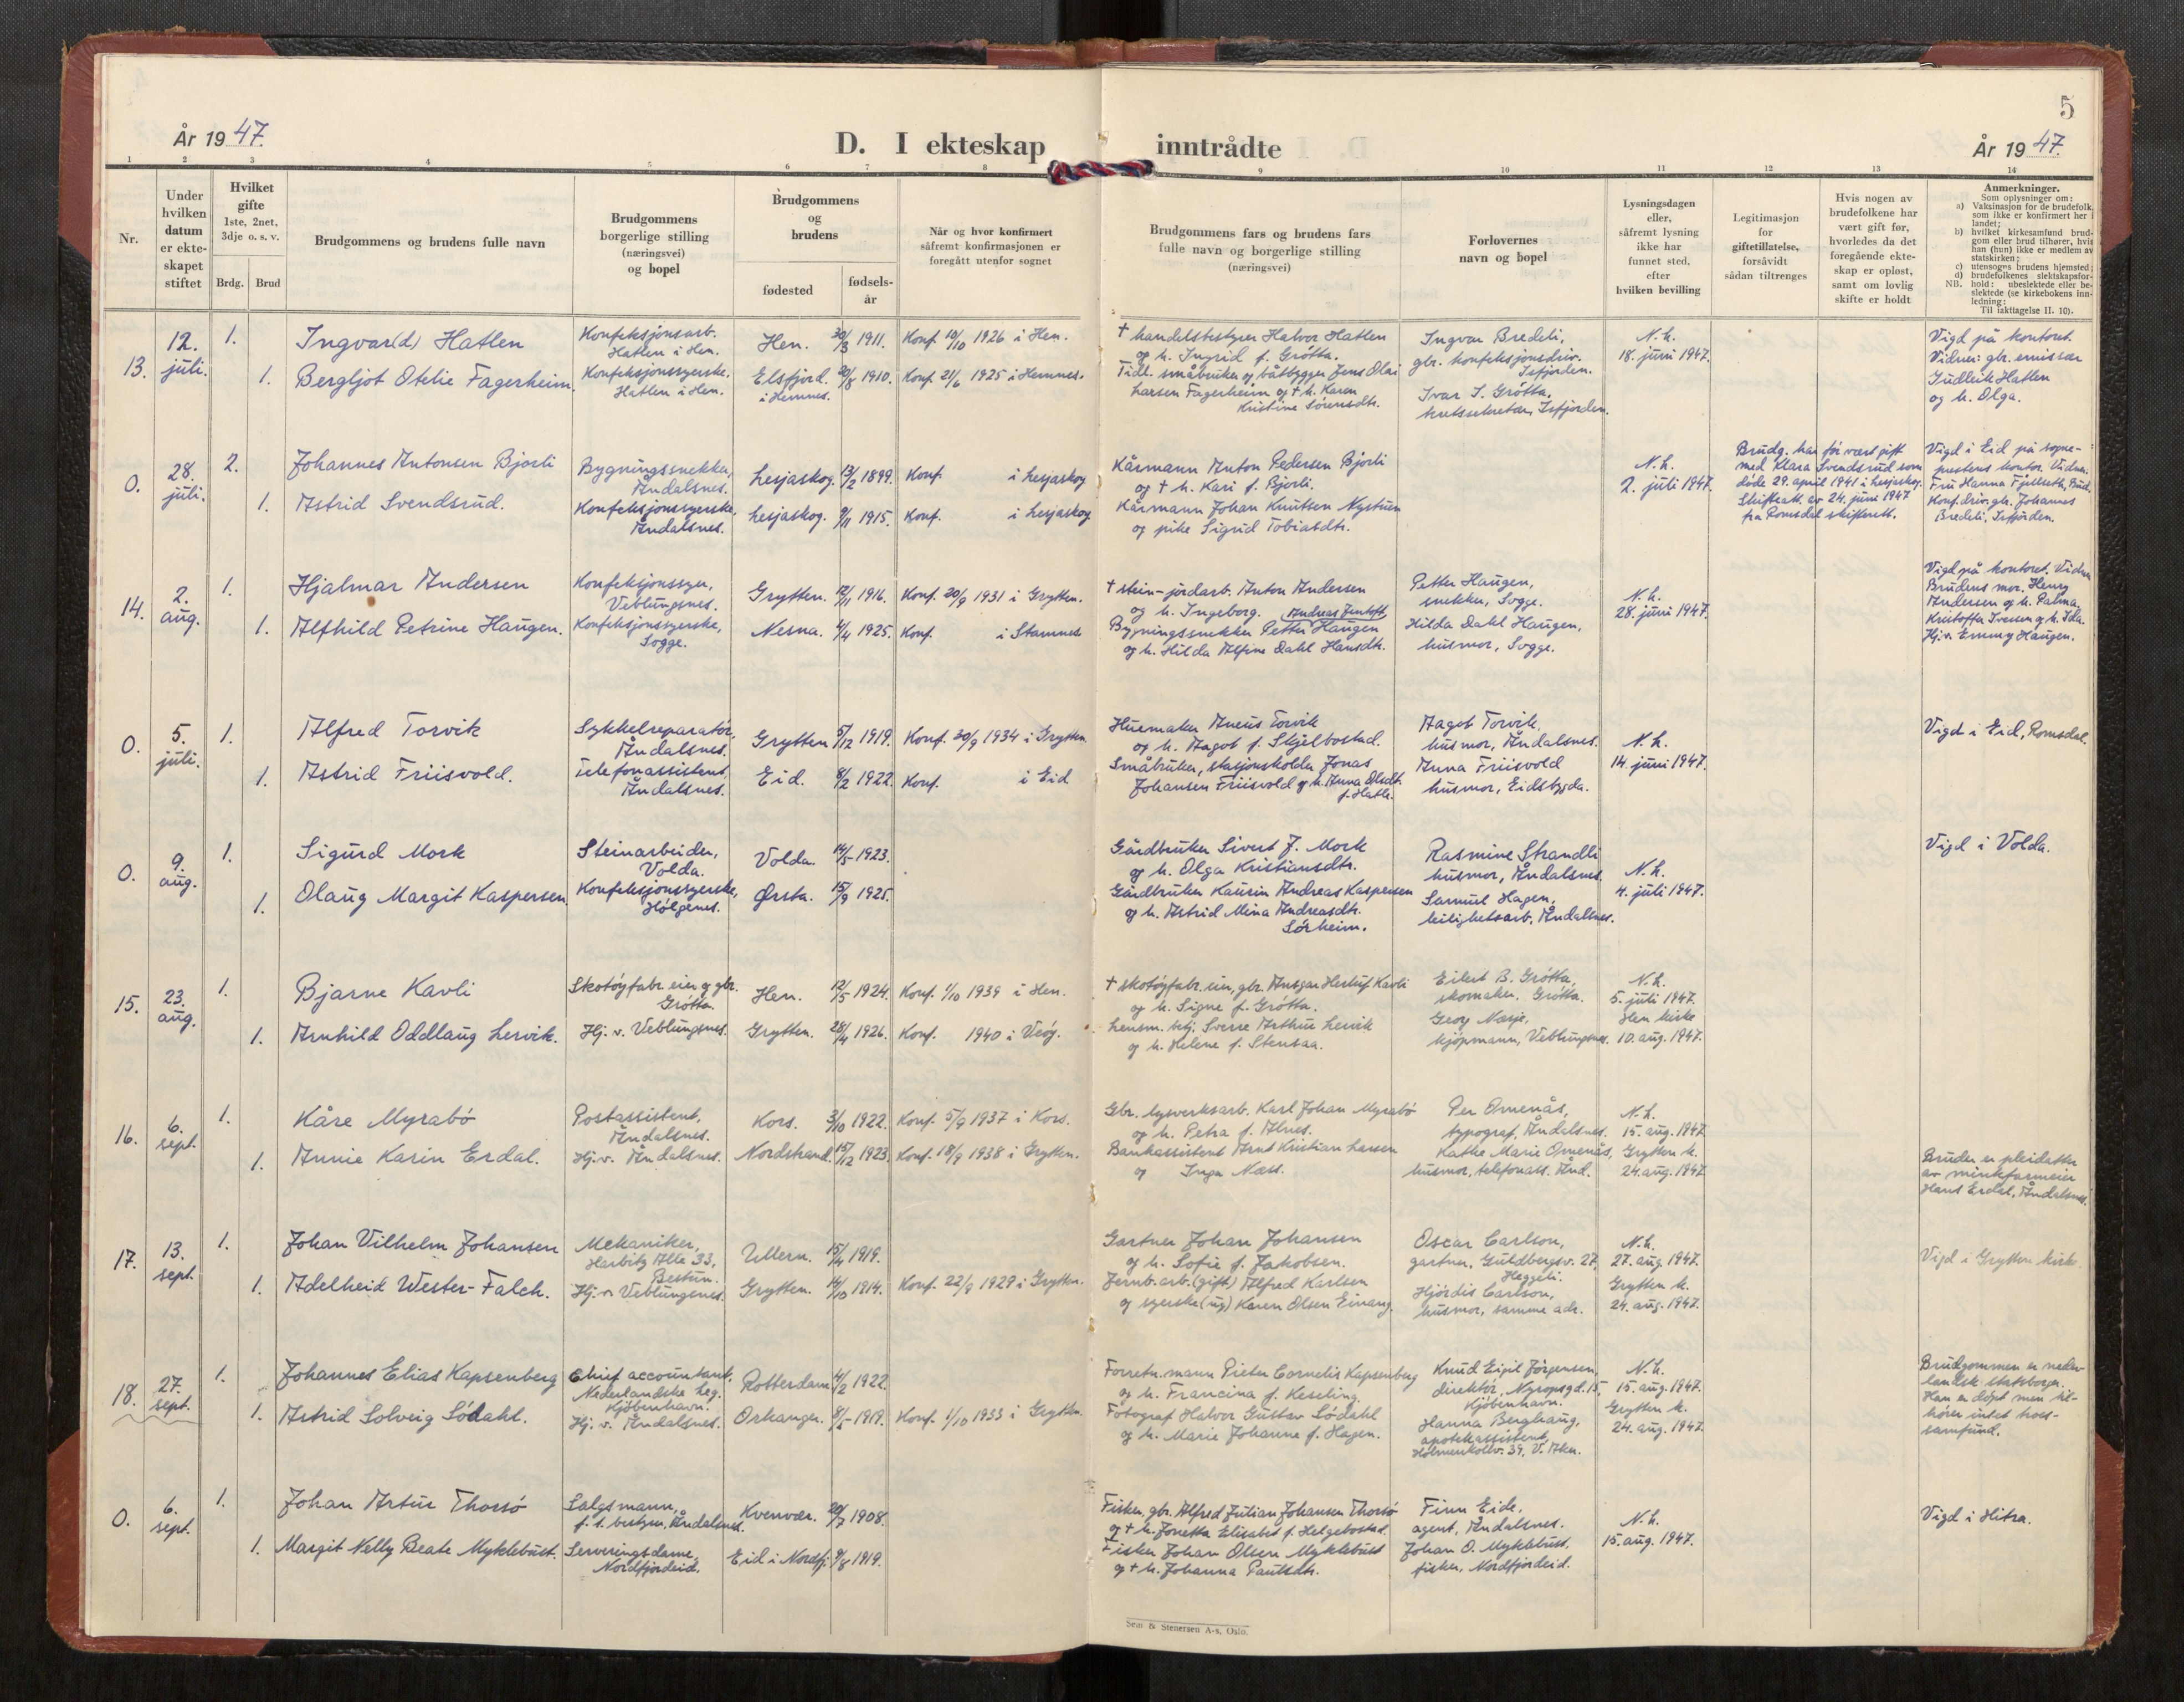 5
År 1947.
D. I ekteskap inntrådte
År 1947.
1 2 3 4 5 6 7 8 9 10 11 12 13 14
Nr.
Under hvilken datum er ekteskapet stiftet
Hvilket gifte
1ste, 2net, 3dje o. s. v.
Brdg. Brud
Brudgommens og brudens fulle navn
Brudgommens borgerlige stilling (næringsvei) og bopel
Brudgommens og brudens
fødested
fødselsår
Når og hvor konfirmert
såfremt konfirmasjonen er
foregått utenfor sognet
Brudgommens fars og brudens fars
fulle navn og borgerlige stilling
(næringsvei)
Forlovernes
navn og bopel
Lysningsdagen
eller,
såfremt lysning
ikke har
funnet sted,
efter
hvilken bevilling
Legitimasjon
for
giftetillatelse,
forsåvidt
sådan tiltrenges
Hvis nogen av
brudefolkene har
vært gift før,
hvorledes da det
foregående ekte-
skap er opløst,
samt om lovlig
skifte er holdt
Anmerkninger.
Som oplysninger om:
a) Vaksinasjon for de brudefolk,
som ikke er konfirmert her i
landet;
b) hvilket kirkesamfund brud-
gom eller brud tilhører, hvis
han (hun) ikke er medlem av
statskirken;
c) utensogns brudens hjemsted;
d) brudefolkenes slektskapsfor-
hold: ubeslektede eller be-
NB. slektede (se kirkebokens inn-
ledning:
Til iakttagelse II. 10).
13. 12. juli.
1. Ingvar(d) Hatlen
Konfeksjonsarb.
Hatlen i Hen.
Hen. 30/3 1911. Konf. 10/10 1926 i Hen.
1. Bergljot Otelie Fagerheim
Konfeksjonssyerske.
Hatlen i Hen.
Elsfjord. 20/8 1910. Konf. 21/6 1925 i Hemnes.
i Hemnes.
† handelsbestyrer Halvor Hatlen
og h. Ingrid f. Grötta.
Tidl. småbruker og båtbygger Jens Olai
Larsen Fagerheim og † h. Karen
Kristine Sörensdtr.
Ingvar Bredeli,
gbr. konfeksjonsdriv.
Isfjorden.
Ivar I. Grötta,
Isfjorden.
N. h.
18. juni 1947.
Vigd på kontoret.
Vidner: gbr. emissær
Gudleik Hatlen
og h. Olga.
0. 28. juli.
2. Johannes Antonsen Bjorli
Bygningssnekker,
Åndalsnes.
Lesjaskog. 13/2 1899. Konf. i Lesjaskog
1. Astrid Svendsrud.
Konfeksjonssyerske,
Åndalsnes.
Lesjaskog. 9/11 1915. Konf. i Lesjaskog
Kårmann Anton Pedersen Bjorli
og † h. Kari f. Bjorli.
Kårmann Johan Knutsen Nystuen
og pike Sigrid Tobiasdtr.
N. h.
2. juli 1947.
Brudg. har før vært gift
med Klara Svendsrud som
döde 29. april 1941 i Lesjaskog.
Skifteatt. av 24. juni 1947
fra Romsdal skifterett.
Vigd i Eid på sogne-
prestens kontor. Vidner:
Fru Hanna Fjellseth, Eid.
Konf.driv. gb. Johannes
Bredeli, Isfjorden.
14. 2. aug.
1. Hjalmar Andersen
Konfeksjonssyer,
Veblungsnes.
Grytten. 12/11 1916. Konf. 20/9 1931 i Grytten.
1. Alfhild Petrine Haugen.
Konfeksjonssyerske,
Sogge.
Nesna. 4/4 1925. Konf. i Stamnes.
† stein-jordarb. Anton Andersen
og h. Ingeborg. Andreas Jentoft
Bygningssnekker Petter Haugen
og h. Hilda Alfine Dahl Hansdtr.
Petter Haugen,
snekker, Sogge.
Hilda Dahl Haugen,
husmor, Sogge.
N. h.
28. juni 1947.
Vigd på kontoret. Vidner
Brudens mor. Henry
Andersen og h. Palma.
Kristoffer Iversen og h. Ida.
Hj.v. Emmy Haugen.
0. 5. juli.
1. Alfred Torvik
Sykkelreparatör,
Åndalsnes.
Grytten 5/12 1919. Konf. 30/9 1934 i Grytten.
1. Astrid Friisvold.
Telefonassistent,
Åndalsnes.
Eid. 8/2 1922. Konf. i Eid
Huemaker Aneus Torvik
og h. Aagot f. Skjelbostad.
Småbruker, stasjonsholder Jonas
Johansen Friisvold og h. Anna Olsdtr.
f. Hatle.
Aagot Torvik,
husmor, Åndalsnes.
Anna Friisvold
husmor, Eidsbygda.
N. h.
14. juni 1947.
Vigd i Eid, Romsdal.
0. 9. aug.
1. Sigurd Mork
Steinarbeider,
Volda.
Volda. 14/5 1923.
1. Olaug Margit Kaspersen.
Konfeksjonssyerske,
Holgenes.
Ørsta. 15/9 1925.
Gårdbruker Sivert J. Mork
og h. Olga Kristiansdtr.
Gårdbruker Kaurin Andreas Kaspersen
og h. Astrid Mina Andreasdtr.
Sörheim.
Rasmine Strandli
husmor, Åndalsnes.
Samuel Hagen,
leilighetsarb. Åndalsnes.
N. h.
4. juli 1947.
Vigd i Volda.
15. 23. aug.
1. Bjarne Kavli
Skotøyfabr. eier og gbr.
Grötta.
Hen. 12/5 1924. Konf. 1/10 1939 i Hen.
1. Arnhild Oddlaug Lervik.
Hj. v. Veblungsnes.
Grytten. 28/4 1926. Konf. 1940 i Veöy.
† skotøyfabr. eier, gbr. Ansgar Herluf Kavli
og h. Signe f. Grötta.
Lensm. betj. Sverre Arthur Lervik
og h. Helene f. Stensaa.
Eilert B. Grötta,
skomaker, Grötta.
Georg Næsje,
kjöpmann, Veblungsnes.
N. h.
5. juli 1947.
Hen kirke
10. aug. 1947.
16. 6. sept.
1. Kåre Myrabö
Postassistent,
Åndalsnes.
Kors. 3/10 1922. Konf. 5/9 1937 i Kors.
1. Annie Karin Erdal.
Hj.v. Åndalsnes.
Nordstrand. 15/12 1923. Konf. 18/9 1938 i Grytten.
Gbr. lysverksarb. Karl Johan Myrabö
og h. Petra f. Alnes.
Bankassistent Arnt Kristian Larsen
og Inga Næss.
Per Omenås,
typograf, Åndalsnes.
Kathe Marie Omenås,
husmor, telefonass. Ånd.
N. h.
15. aug. 1947
Grytten k.
24. aug. 1947
Bruden er pleiedatter
av minkfarmeier
Hans Erdal, Åndalsnes.
17. 13. sept.
1. Johan Vilhelm Johansen
Mekaniker,
Harbitz Alle 33,
Bestun.
Ullern. 15/4 1919.
1. Adelheid Wester-Falch.
Hj. v. Veblungsnes.
Grytten. 14/10 1914. Konf. 22/9 1929 i Grytten.
Gartner Johan Johansen
og h. Sofie f. Jakobsen.
Jernb. arb. (gift) Alfred Karlsen
og syerske (ug) Karen Olsen Einang.
Oscar Carlson,
gartner, Guldbergsv. 27,
Heggeli.
Hjördis Carlson,
husmor, samme adr.
N. h.
27. aug. 1947.
Grytten k.
24. aug. 1947.
Vigd i Grytten kirke.
18. 27. sept.
1. Johannes Elias Kapsenberg
Chief accountant,
Nederlandske leg.
Kjöbenhavn.
Rotterdam 4/2 1922.
1. Astrid Solveig Södahl.
Hj. v. Åndalsnes.
Orkanger. 8/5 1919. Konf. 1/10 1933 i Grytten.
Forretn.mann Pieter Cornelis Kapsenberg
og h. Francina f. Keseling
Fotograf Halvor Gustav Södahl
og h. Marie Johanne f. Hagen.
Knud Eigil Jörgensen,
direktör, Nyropsgd. 15,
Kjöbenhavn.
Hanna Berghaug,
apotekassistent,
Holmenkollv. 39, V. Aker.
N. h.
15. aug. 1947.
Grytten k.
24. aug. 1947.
Brudgommen er neder-
landsk statsborger.
Han er döpt men til-
hörer intet tros-
samfund.
0. 6. sept.
1. Johan Artur Thorsö
Salgsmann,
f. t. bestyrer, Åndalsnes.
Kvenvær. 20/7 1908.
1. Margit Nelly Beate Myklebust.
Serveringsdame,
Nordfjordeid.
Eid i Nordfj. 9/8 1919.
Fisker, gbr. Alfred Julian Johansen Thorsö
og † h. Jonetta Elisabet f. Helgebostad.
Fisker Johan Olsen Myklebust
og † h. Johanna Paulsdtr.
Finn Eide,
agent, Åndalsnes.
Johan O. Myklebust,
fisker, Nordfjordeid.
N. h.
15. aug. 1947.
Vigd i Hitra.
Sem & Stenersen A-s, Oslo.